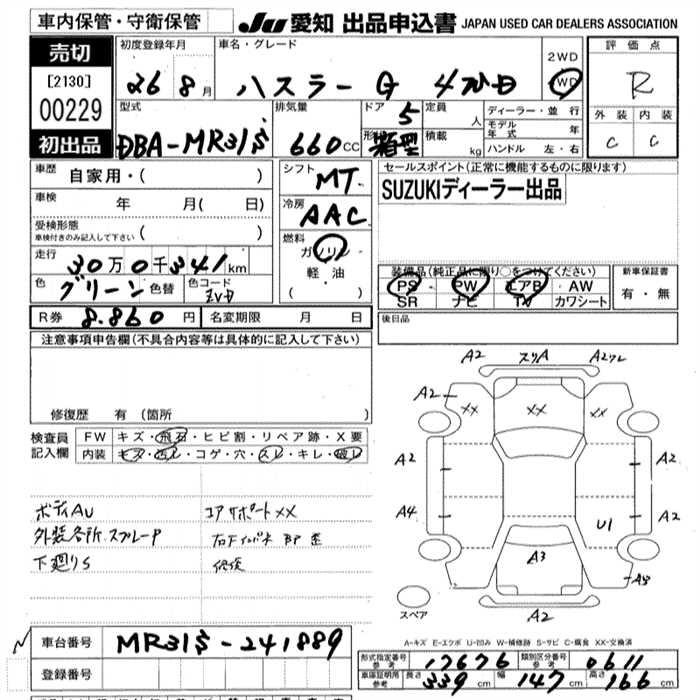 車内保管・守衛保管
JU 愛知 出品申込書 JAPAN USED CAR DEALERS ASSOCIATION
売切
[2130]
00229
初出品
初度登録年月
26年 8月
車名・グレード
ハスラー G 4WD
2WD
4WD
評価点
R
外装 内装
C C
型式
DBA-MR31S
排気量
660cc
ドア 5
形状 箱型
定員 人
積載 kg
ディーラー・並行
モデル年式 年
ハンドル 左・右
車歴
自家用・( )
車検
年 月( 日)
受検形態
車検付きのみ記入して下さい ( )
走行
30万0千341km
色 グリーン 色替
色コード ZVD
シフト
MT
冷房
AAC
燃料
ガソリン
軽・油
( ・ )
セールスポイント(正常に機能するものに限ります)
SUZUKIディーラー出品
装備品(純正品に限り○をつけてください)
PS PW エアB AW
SR ナビ TV カワシート
新車保証書
有・無
R券 8.860円 名変期限 月 日
後日品
注意事項申告欄(不具合内容等は具体的に記入して下さい)
修復歴 有(箇所 )
検査員記入欄
FW キズ・飛石・ヒビ割・リペア跡・X要
内装 キズ・汚レ・コゲ・穴・スレ・キレ・破レ
ボディAU
外装各所スプレーP
下廻りS
コアサポートXX
修復
A2 スリA A2ワレ
A2
XX XX XX
A2 A2
A4 A2
U1
A3
A3
A2
スペア
A-キズ E-エクボ U-凹み W-補修跡 S-サビ C-腐食 XX-交換済
車台番号 MR31S-241889
登録番号
形式指定番号 参考 17676 類別区分番号 参考 0611
車庫証明用 参考 長さ 339cm 幅 147cm 高さ 166cm